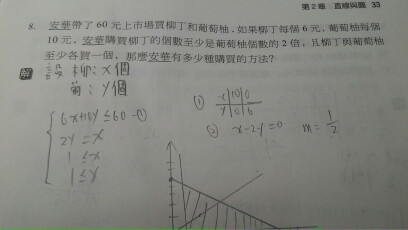 第2章 直線與圓 33
8. 安華帶了 60 元上市場買柳丁和葡萄柚,如果柳丁每個 6 元,葡萄柚每個
10 元,安華購買柳丁的個數至少是葡萄柚個數的 2 倍,且柳丁與葡萄柚
至少各買一個,那麼安華有多少種購買的方法?
解 設 柳:x個
葡:y個
6x+10y≤60-①
2y=x
1≤x
1≤y
① x|10|0
y|0|6
② x-2y=0 m=1/2